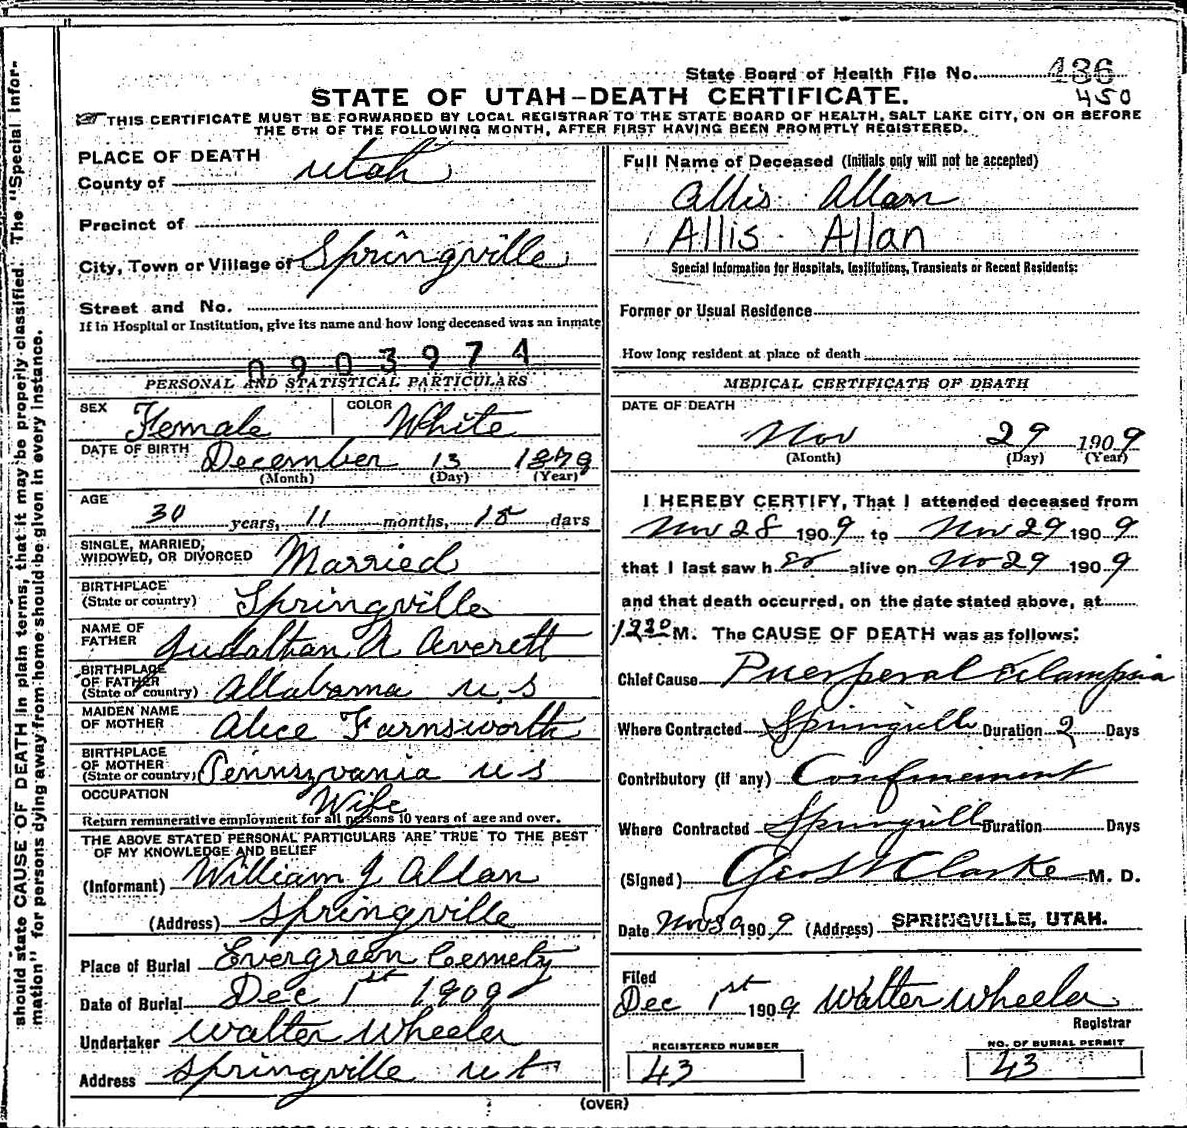 State Board of Health File No. 436
450
STATE OF UTAH-DEATH CERTIFICATE.
THIS CERTIFICATE MUST BE FORWARDED BY LOCAL REGISTRAR TO THE STATE BOARD OF HEALTH, SALT LAKE CITY, ON OR BEFORE
THE 5TH OF THE FOLLOWING MONTH, AFTER FIRST HAVING BEEN PROMPTLY REGISTERED.
should state CAUSE OF DEATH in plain terms, that it may be properly classified. The "Special Infor-
mation" for persons dying away from home should be given in every instance.
PLACE OF DEATH
County of Utah
Precinct of
City, Town or Village of Springville
Street and No.
If in Hospital or Institution, give its name and how long deceased was an inmate
0903974
PERSONAL AND STATISTICAL PARTICULARS
SEX Female COLOR White
DATE OF BIRTH December 13 1879
(Month) (Day) (Year)
AGE
30 years, 11 months, 15 days
SINGLE, MARRIED,
WIDOWED, OR DIVORCED Married
BIRTHPLACE
(State or country) Springville
NAME OF
FATHER A Averett
BIRTHPLACE
OF FATHER
(State or country) Allabama U S
MAIDEN NAME
OF MOTHER Alice Farnsworth
BIRTHPLACE
OF MOTHER
(State or country) Pennszvania U S
OCCUPATION Wife
Return remunerative employment for all persons 10 years of age and over.
THE ABOVE STATED PERSONAL PARTICULARS ARE TRUE TO THE BEST
OF MY KNOWLEDGE AND BELIEF
(Informant) William J Allan
(Address) Springville
Place of Burial Evergreen Cemety
Date of Burial Dec 1st 1909
Undertaker Walter Wheeler
Address Springville Ut
Full Name of Deceased (Initials only will not be accepted)
Allis Allan
Allis Allan
Special Information for Hospitals, Institutions, Transients or Recent Residents:
Former or Usual Residence
How long resident at place of death
MEDICAL CERTIFICATE OF DEATH
DATE OF DEATH
Nov 29 1909
(Month) (Day) (Year)
I HEREBY CERTIFY, That I attended deceased from
Nov 28 1909 to Nov 29 1909
that I last saw her alive on No 29 1909
and that death occurred, on the date stated above, at
1230 M. The CAUSE OF DEATH was as follows:
Chief Cause Puerperal Eclampsia
Where Contracted Springville Duration 2 Days
Contributory (if any) Confinement
Where Contracted Springvill Duration Days
(Signed) Geo Clarke M. D.
Date Nov 1909 (Address) SPRINGVILLE, UTAH.
Filed
Dec 1st 1909 Walter Wheeler
Registrar
REGISTERED NUMBER NO. OF BURIAL PERMIT
43 43
(OVER)